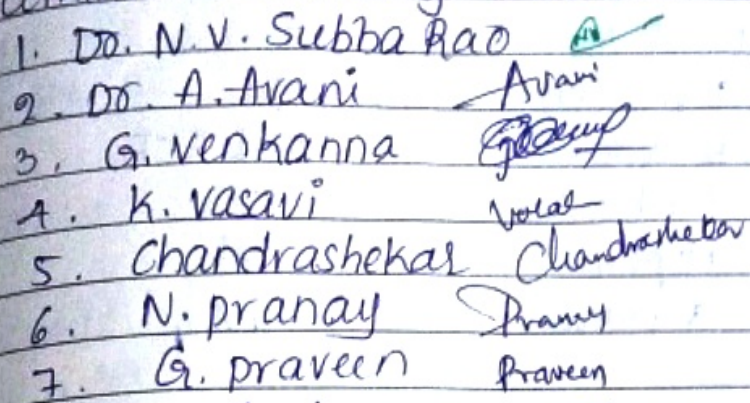 1. Dr. N.V. Subba Rao
2. Dr. A. Avani Avani
3. G. Venkanna
4. K. Vasavi
5. Chandrashekar Chandrashekar
6. N. Pranay Pranay
7. G. Praveen Praveen